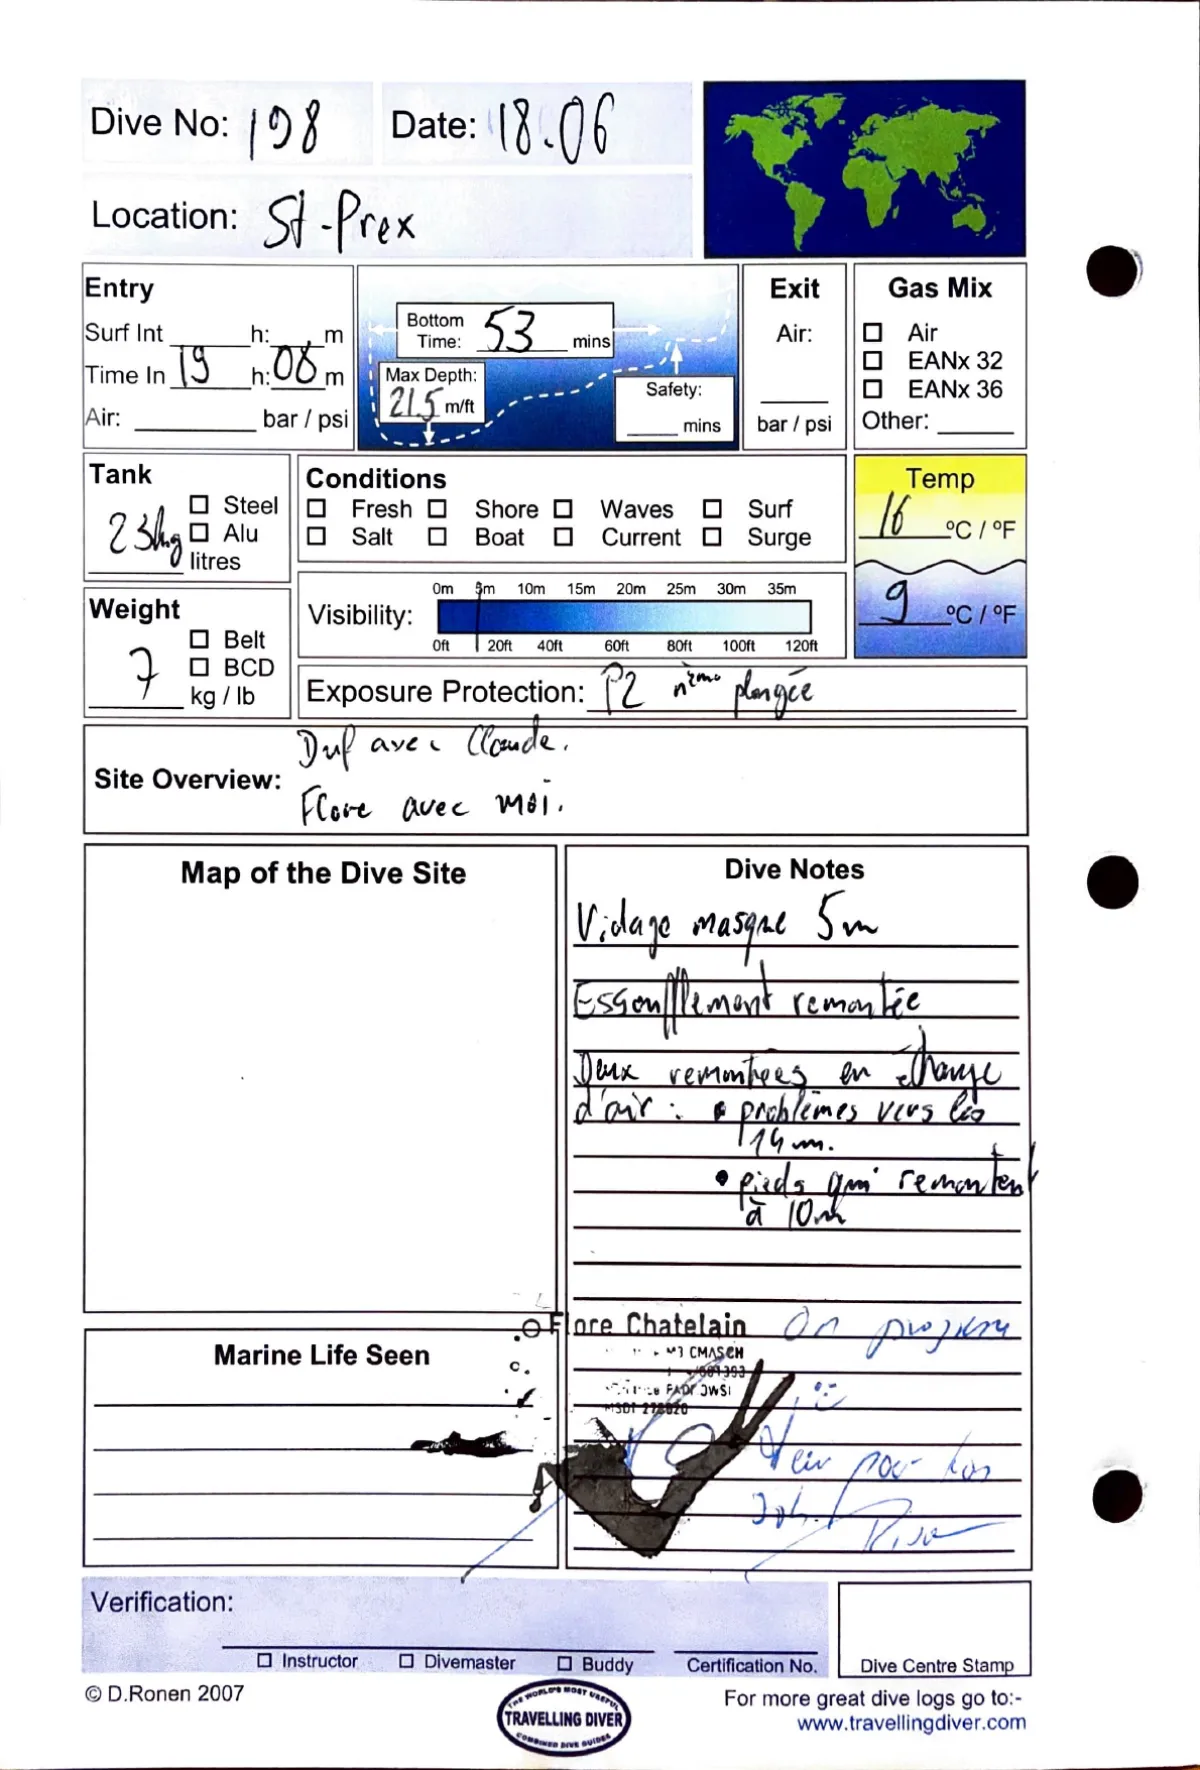 Dive No: 198
Date: 18.06
Location: St-Prex
Entry
Surf Int ____ h: ____ m
Time In 19 h: 08 m
Air: ____ bar / psi
Bottom Time: 53 mins
Max Depth: 21.5 m/ft
Safety: ____ mins
Exit
Air:
____
bar / psi
Gas Mix
Air
EANx 32
EANx 36
Other: ____
Tank
Steel
Alu
litres
Conditions
Fresh Shore Waves Surf
Salt Boat Current Surge
Temp
16 °C / °F
9 °C / °F
Weight
Belt
7 BCD
kg / lb
0m 5m 10m 15m 20m 25m 30m 35m
Visibility:
0ft 20ft 40ft 60ft 80ft 100ft 120ft
Exposure Protection: P2 plongée
Site Overview:
avec Claude.
Flore avec moi.
Map of the Dive Site
Dive Notes
Vidage masque 5m
Essoufflement remontée
Deux remontées en échange
d'air : • problèmes vers les
14 m.
• pieds qui remontent
à 10m
Flore Chatelain
M3 CMASCH
On progresse
Marine Life Seen
Verification:
Instructor Divemaster Buddy Certification No.
Dive Centre Stamp
© D.Ronen 2007
THE WORLD'S MOST USEFUL
TRAVELLING DIVER
COMBINED DIVE GUIDES
For more great dive logs go to:-
www.travellingdiver.com